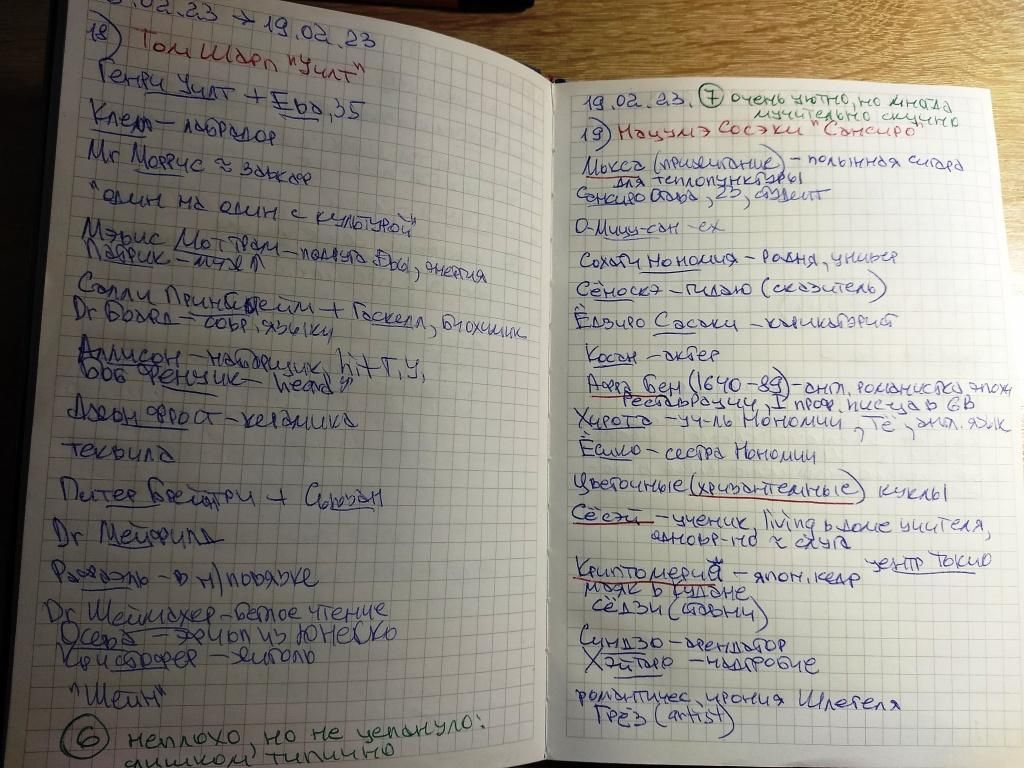 .02.23 → 19.02.23
18) Том Шарп "Уилт"
Генри Уилт + Ева, 35
Клем – лабрадор
Mr Моррис ≈ завкаф
"один на один с культурой"
Мэвис Моттрам – подруга Евы, энергия
Патрик – муж
Салли Прингшейм + Гаскелл, биохимик
Dr Боард – совр. языки
– heard
керамика
текила
Питер Брейтри + Сьюзан
Dr Мейфилд
Рафаэль – в н/порядке
Dr Шеймахер – беглое чтение
из Юнеско
Кристофер –
"Шейн"
6 неплохо, но не цепануло:
слишком типично
19.02.23. 7 очень уютно, но иногда
мучительно скучно
19) Нацумэ Сосэки "Сансиро"
Мокса (прижигание) – полынная сигара
для теплопунктуры
Сансиро Огава, 23, студент
О-Мицу-сан – ex
Сохати Нономия – родня, универ
Сёноскэ – гидаю (сказитель)
Ёдзиро Сасаки –
Косан – актер
Афра Бен (1640–89) – англ. романистка эпохи
Реставрации, I проф. писца в GB
Хирота – уч-ль Нономии, Ёдз, англ. язык
Ёсико – сестра Нономии
Цветочные (хризантемные) куклы
Сёсэй – ученик, living в доме учителя,
одновр-но ≈ слуга
Криптомерия – япон. кедр центр Токио
маяк в Кудане
сёдзи (ставни)
Сундзо – арендатор
Хэйтаро – надгробие
романтичес. ирония Шлегеля
Грёз (artist)